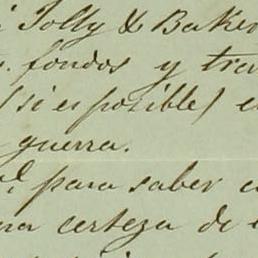 Jolly & Baker
fondos y tra
(si es posible) e
guerra.
para saber c
na certeza de e